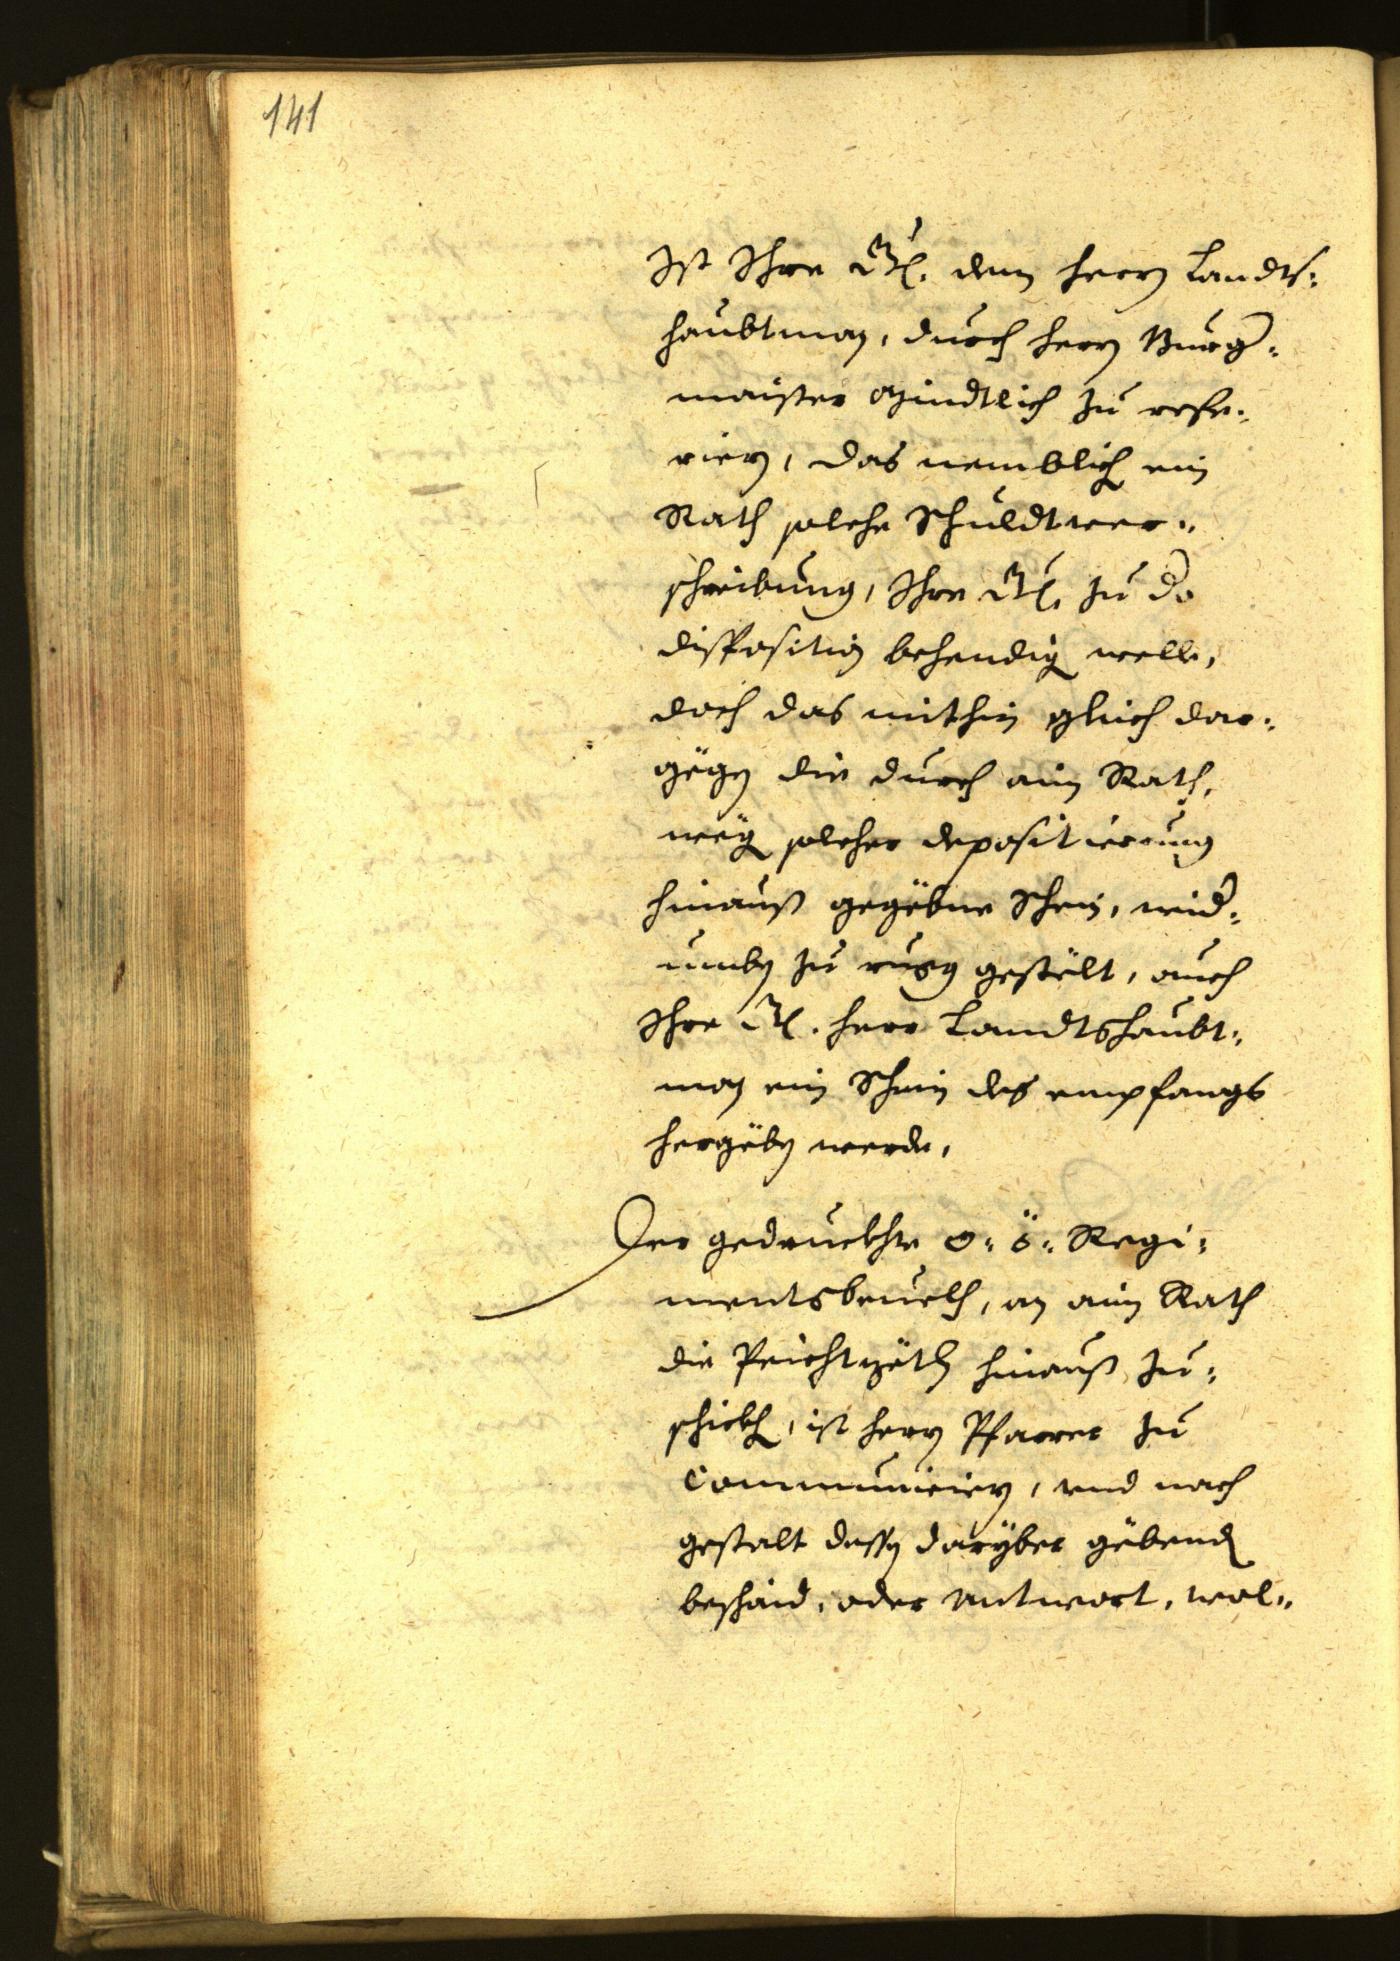 141
Ist Ihre Gn. dem herrn Landts:
haubtman, durch herrn Burg:
maister mindtlich zu refe:
riern, das nemblich ein
Rath solche Schuldtver:
schreibung, Ihre Gn. zu der
disposition behendign welle,
doch das mithin gleich dar:
gögen die durch ain Rath,
wegen solcher depositierung
hinauß gegebne Schein, wid:
umben zu rugg gestölt, auch
Ihre Gn. herr Landtshaubt:
man ein Schein des empfangs
hergeben werde,
Der gedruckhte O: Ö: Regi:
mentsbeuelch, an ain Rath
die Peichtzötl hinauß zu:
schickhen, ist herrn Pfarrer zu
Communiciern, vnd nach
gestalt dessen darüber gebend
beschaid, oder Antwort, wol: